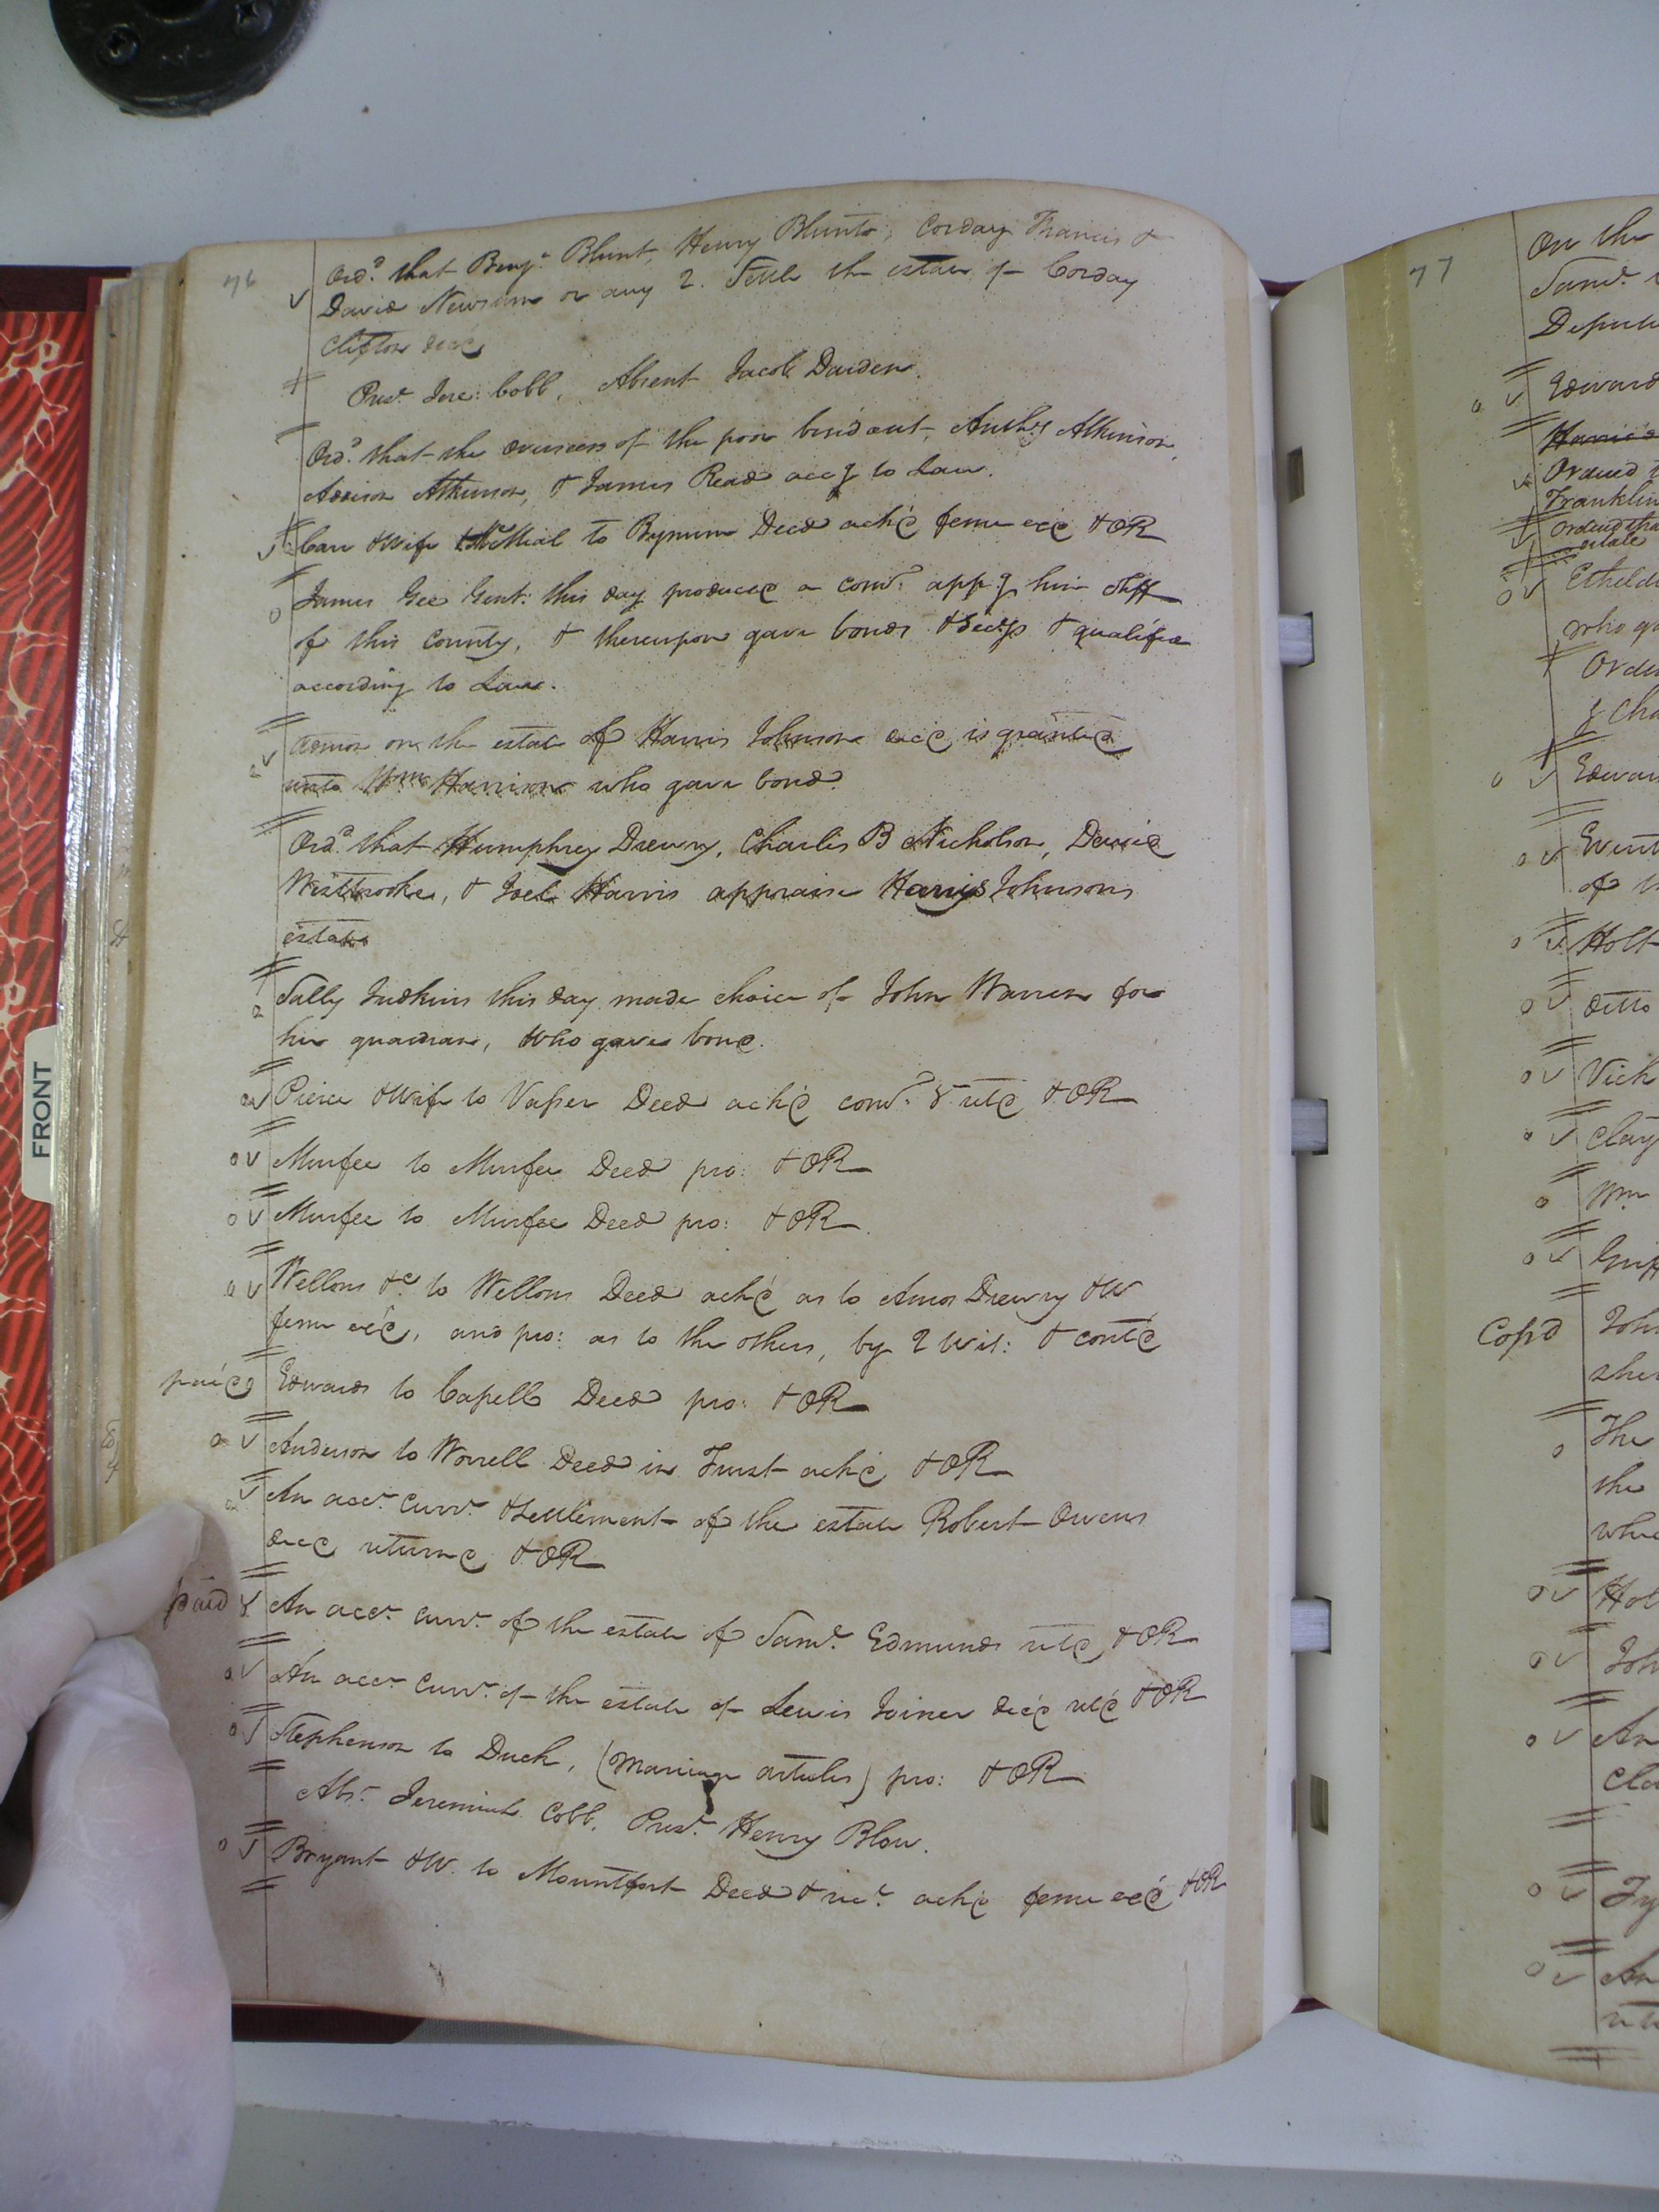 76
Ord.d that Benj.a Blunt, Henry Blunt, Corday Francis &
David Newsum or any 2. Settle the estate of Corday
Clifton decd
Pres.t Jere: Cobb, Absent Jacob Darden.
Ord.d that the overseers of the poor bind out, Anth.y Atkinson,
Addison Atkinson, & James Read accg to Law.
Carr & Wife to Bynum Deed ack'd feme exd & OR
James Gee Gent: this day produced a com.n appg him Shff
of this County, & thereupon gave bonds & Secy & qualified
according to Law.
Admon on the estate of Harris Johnson decd is granted
unto Wm Harrison who gave bond.
Ord.d that Humphrey Drewry, Charles B Nicholson, David
Westbrooke, & Joel Harris appraise Harris Johnsons
estate
Sally Judkins this day made choice of John Warren for
her guardian, who gave bond.
Pierce & Wife to Vasser Deed ack'd com.n & retd & OR
Murfee to Murfee Deed pro: & OR
Murfee to Murfee Deed pro: & OR
Wellons &c to Wellons Deed ack'd as to Amos Drewry & W
feme exd, and pro: as to the others, by 2 Wit: & contd
paid Edwards to Capell Deed pro: & OR
Anderson to Worrell Deed in Trust ack'd & OR
An acct. Curr.t & Settlement of the estate Robert Owens
decd returned & OR
paid An acct. curr.t of the estate of Saml. Edmunds retd & OR
An acct Curr.t of the estate of Lewis Joiner decd retd & OR
Stephenson to Duck, (Marriage articles) pro: & OR
Abs.t Jeremiah Cobb. Pres.t Henry Blow.
Bryant & W. to Mountfort Deed & rect. ack'd feme exd & OR
FRONT
77
On the
Saml.
Edward
Franklin
estate
who
Holt
Ditto
Vick
Clay
Wm
Cop'd John
The
the